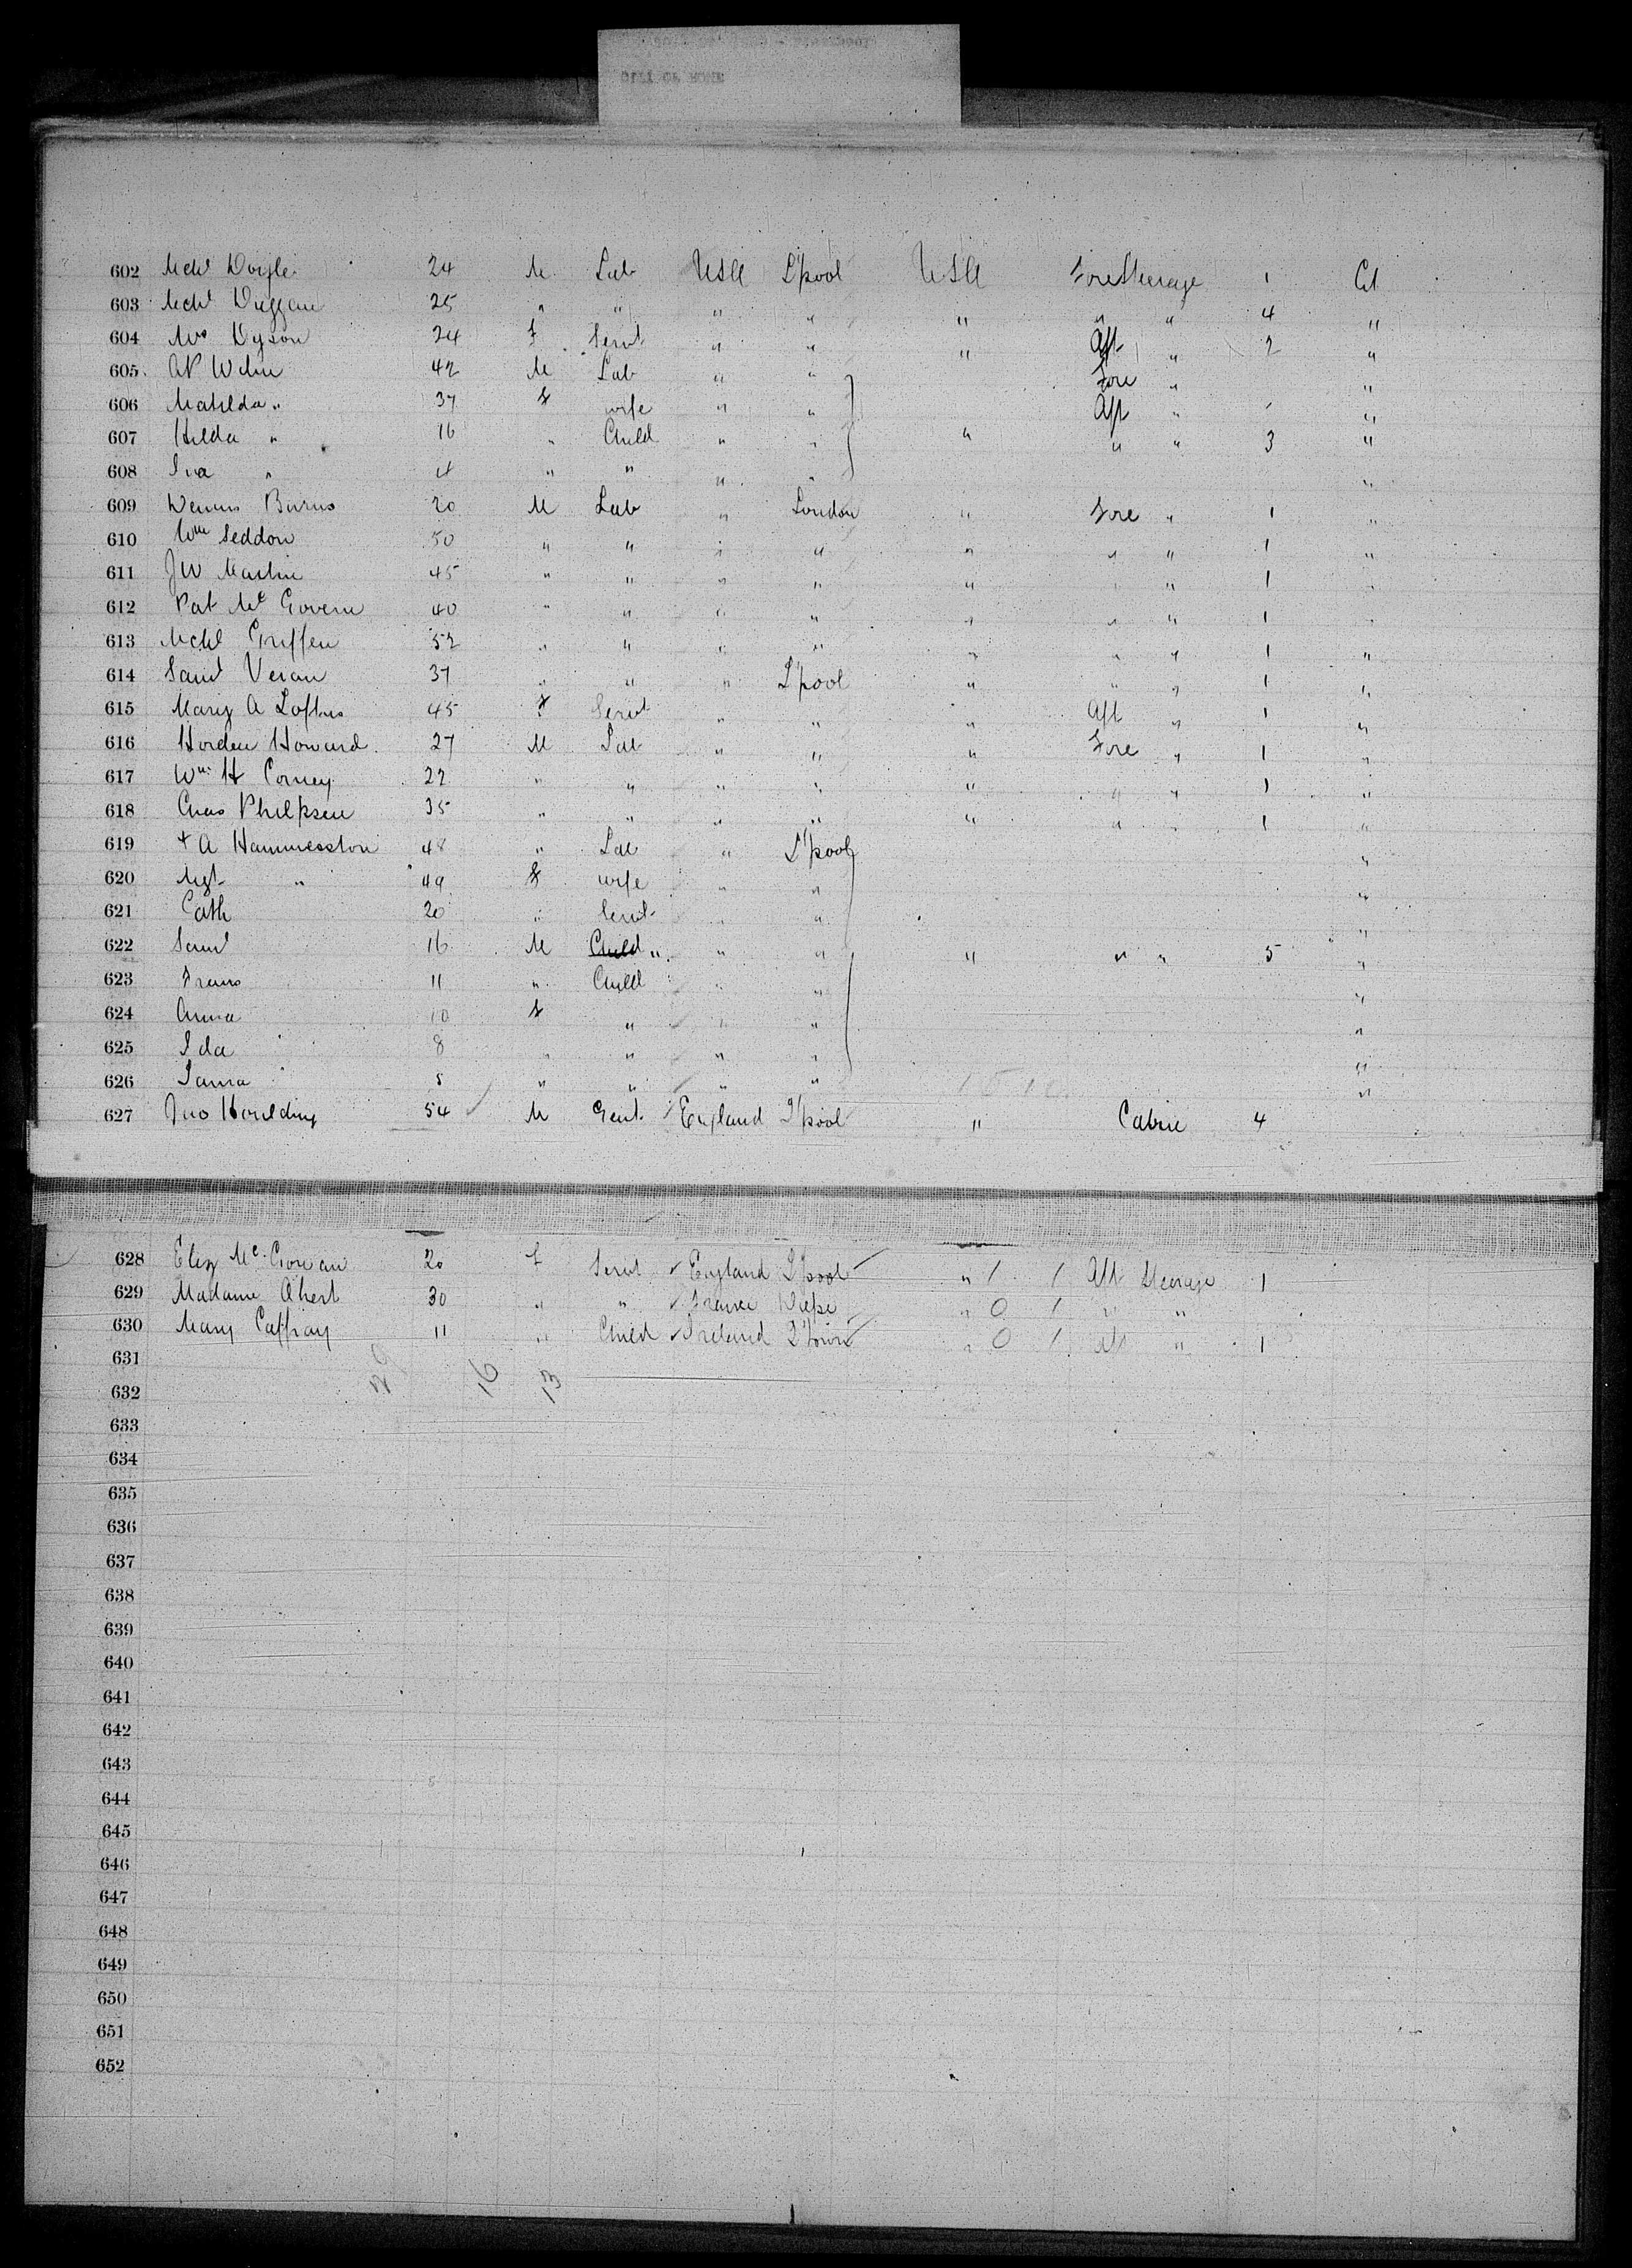 CITY OF ROME
602 Mchl Doyle 24 M Lab USA L'pool USA Fore Steerage 1 Ct
603 Mchl Duggan 25 " " " " " " " 4 "
604 Mrs Dyson 24 F Servt " " " Aft " 2 "
605 42 M Lab " " Fore " "
606 Matilda " 37 F wife " " Aft " "
607 Hilda " 16 " Child " " " " " 3 "
608 Iva " 4 " " " " "
609 Dennis Burns 20 M Lab " London " Fore " 1 "
610 Wm Seddon 50 " " " " " " " 1 "
611 JW Martin 45 " " " " " " " 1 "
612 Pat McGovern 40 " " " " " " " 1 "
613 Mchl Griffen 52 " " " " " " " 1 "
614 Saml Veran 37 " " " L'pool " " " 1 "
615 Mary A Loftus 45 F Servt " " " Aft " 1 "
616 Horden Howard 27 M Lab " " " Fore " 1 "
617 Wm H Corney 22 " " " " " " " 1 "
618 Chas Philpsen 35 " " " " " " " 1 "
619 + A Hammesston 48 " Lab " L'pool "
620 Mgt " 49 F wife " " "
621 Cath 20 " Servt " " "
622 Saml 16 M Child " " " " " " 5 "
623 Frans 11 " Child " " "
624 Anna 10 F " " " "
625 Ida 8 " " " " "
626 5 " " " " "
627 Jno Houlding 54 M Gent England L'pool " Cabin 4
628 Eliz Mc 20 F Servt England L'pool " 1 1 Aft Steerage 1
629 Madame 30 " " France " 0 1 " "
630 Mary Caffray 11 " Child Ireland Q'town " 0 1 Aft " 1
631
29 16 13
632
633
634
635
636
637
638
639
640
641
642
643
644
645
646
647
648
649
650
651
652